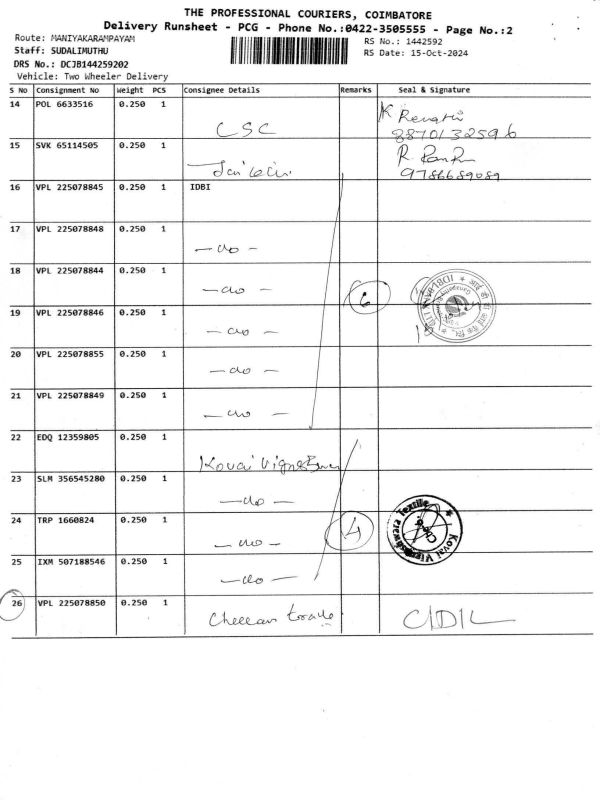 THE PROFESSIONAL COURIERS, COIMBATORE
Delivery Runsheet - PCG - Phone No.:0422-3505555 - Page No.:2
Route: MANIYAKARAMPAYAM
RS No.: 1442592
Staff: SUDALIMUTHU
RS Date: 15-Oct-2024
DRS No.: DCJB144259202
Vehicle: Two Wheeler Delivery
S No Consignment No Weight PCS Consignee Details Remarks Seal & Signature
14 POL 6633516 0.250 1 CSC K Revathi
8870132596
15 SVK 65114505 0.250 1 R.
9786689089
16 VPL 225078845 0.250 1 IDBI
17 VPL 225078848 0.250 1 -do-
18 VPL 225078844 0.250 1 -do- 6
19 VPL 225078846 0.250 1 -do-
20 VPL 225078855 0.250 1 -do-
21 VPL 225078849 0.250 1 -do-
22 EDQ 12359805 0.250 1 Kovai Vigneswara
23 SLM 356545280 0.250 1 -do-
24 TRP 1660824 0.250 1 -do- 4 Kovai Vigneshwara Textile
25 IXM 507188546 0.250 1 -do-
26 VPL 225078850 0.250 1 Chellan trade